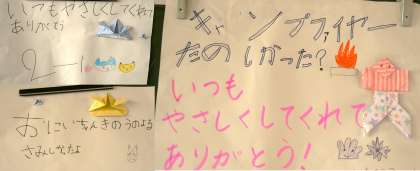 いつもやさしくしてくれて
ありがとう
2-1
おにいちゃんきのうのよる
さみしかたよ
キャンプファイヤー
たのしかった?
いつも
やさしくしてくれて
ありがとう!